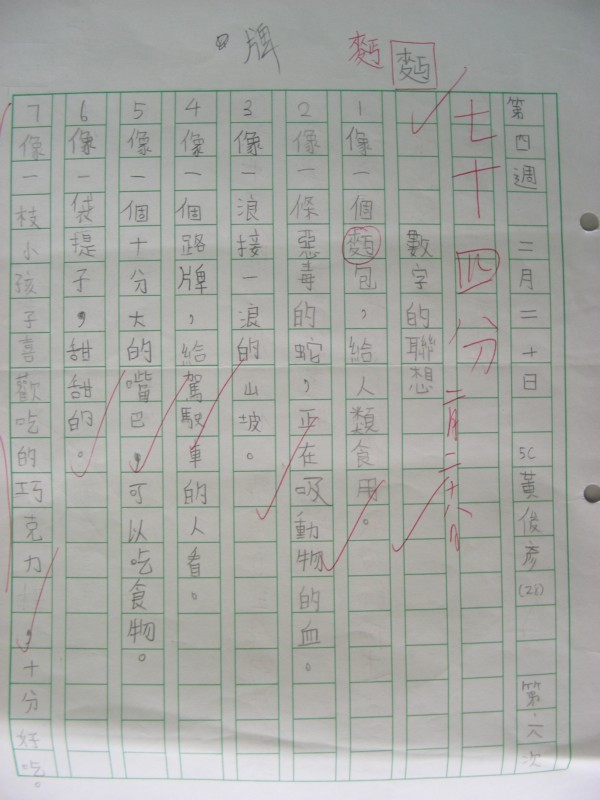 牌 麪 麪
第四週 二月二十日 5C 黃俊彥 (28) 第六次
七十四分 二月二十八日
數字的聯想
1 像一個麪包，給人類食用。
2 像一條惡毒的蛇，正在吸動物的血。
3 像一浪接一浪的山坡。
4 像一個路牌，給駕駛車的人看。
5 像一個十分大的嘴巴，可以吃食物。
6 像一袋提子，甜甜的。
7 像一枝小孩子喜歡吃的巧克力，十分好吃。